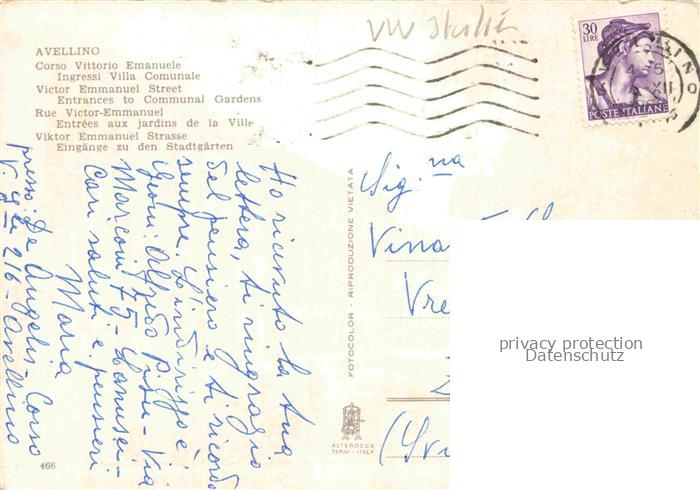 VW Italië
AVELLINO
Corso Vittorio Emanuele
Ingressi Villa Comunale
Victor Emmanuel Street
Entrances to Communal Gardens
Rue Victor-Emmanuel
Entrées aux jardins de la Ville
Viktor Emmanuel Strasse
Eingänge zu den Stadtgärten
30
LIRE
POSTE ITALIANE
Ho ricevuto la tua
lettera, ti ringrazio
del pensiero e ti ricordo
sempre. L'indirizzo è
Giovi Alfredo Pisu - Via
Marconi 75 - Lanusei -
Cari saluti e pensieri
Maria
presso De Angelis Corso
V. Em. 216 - Avellino
FOTOCOLOR - RIPRODUZIONE VIETATA
Sig.na
Vina
Vre
(Svi
privacy protection
Datenschutz
ALTEROCCA
TERNI - ITALY
466